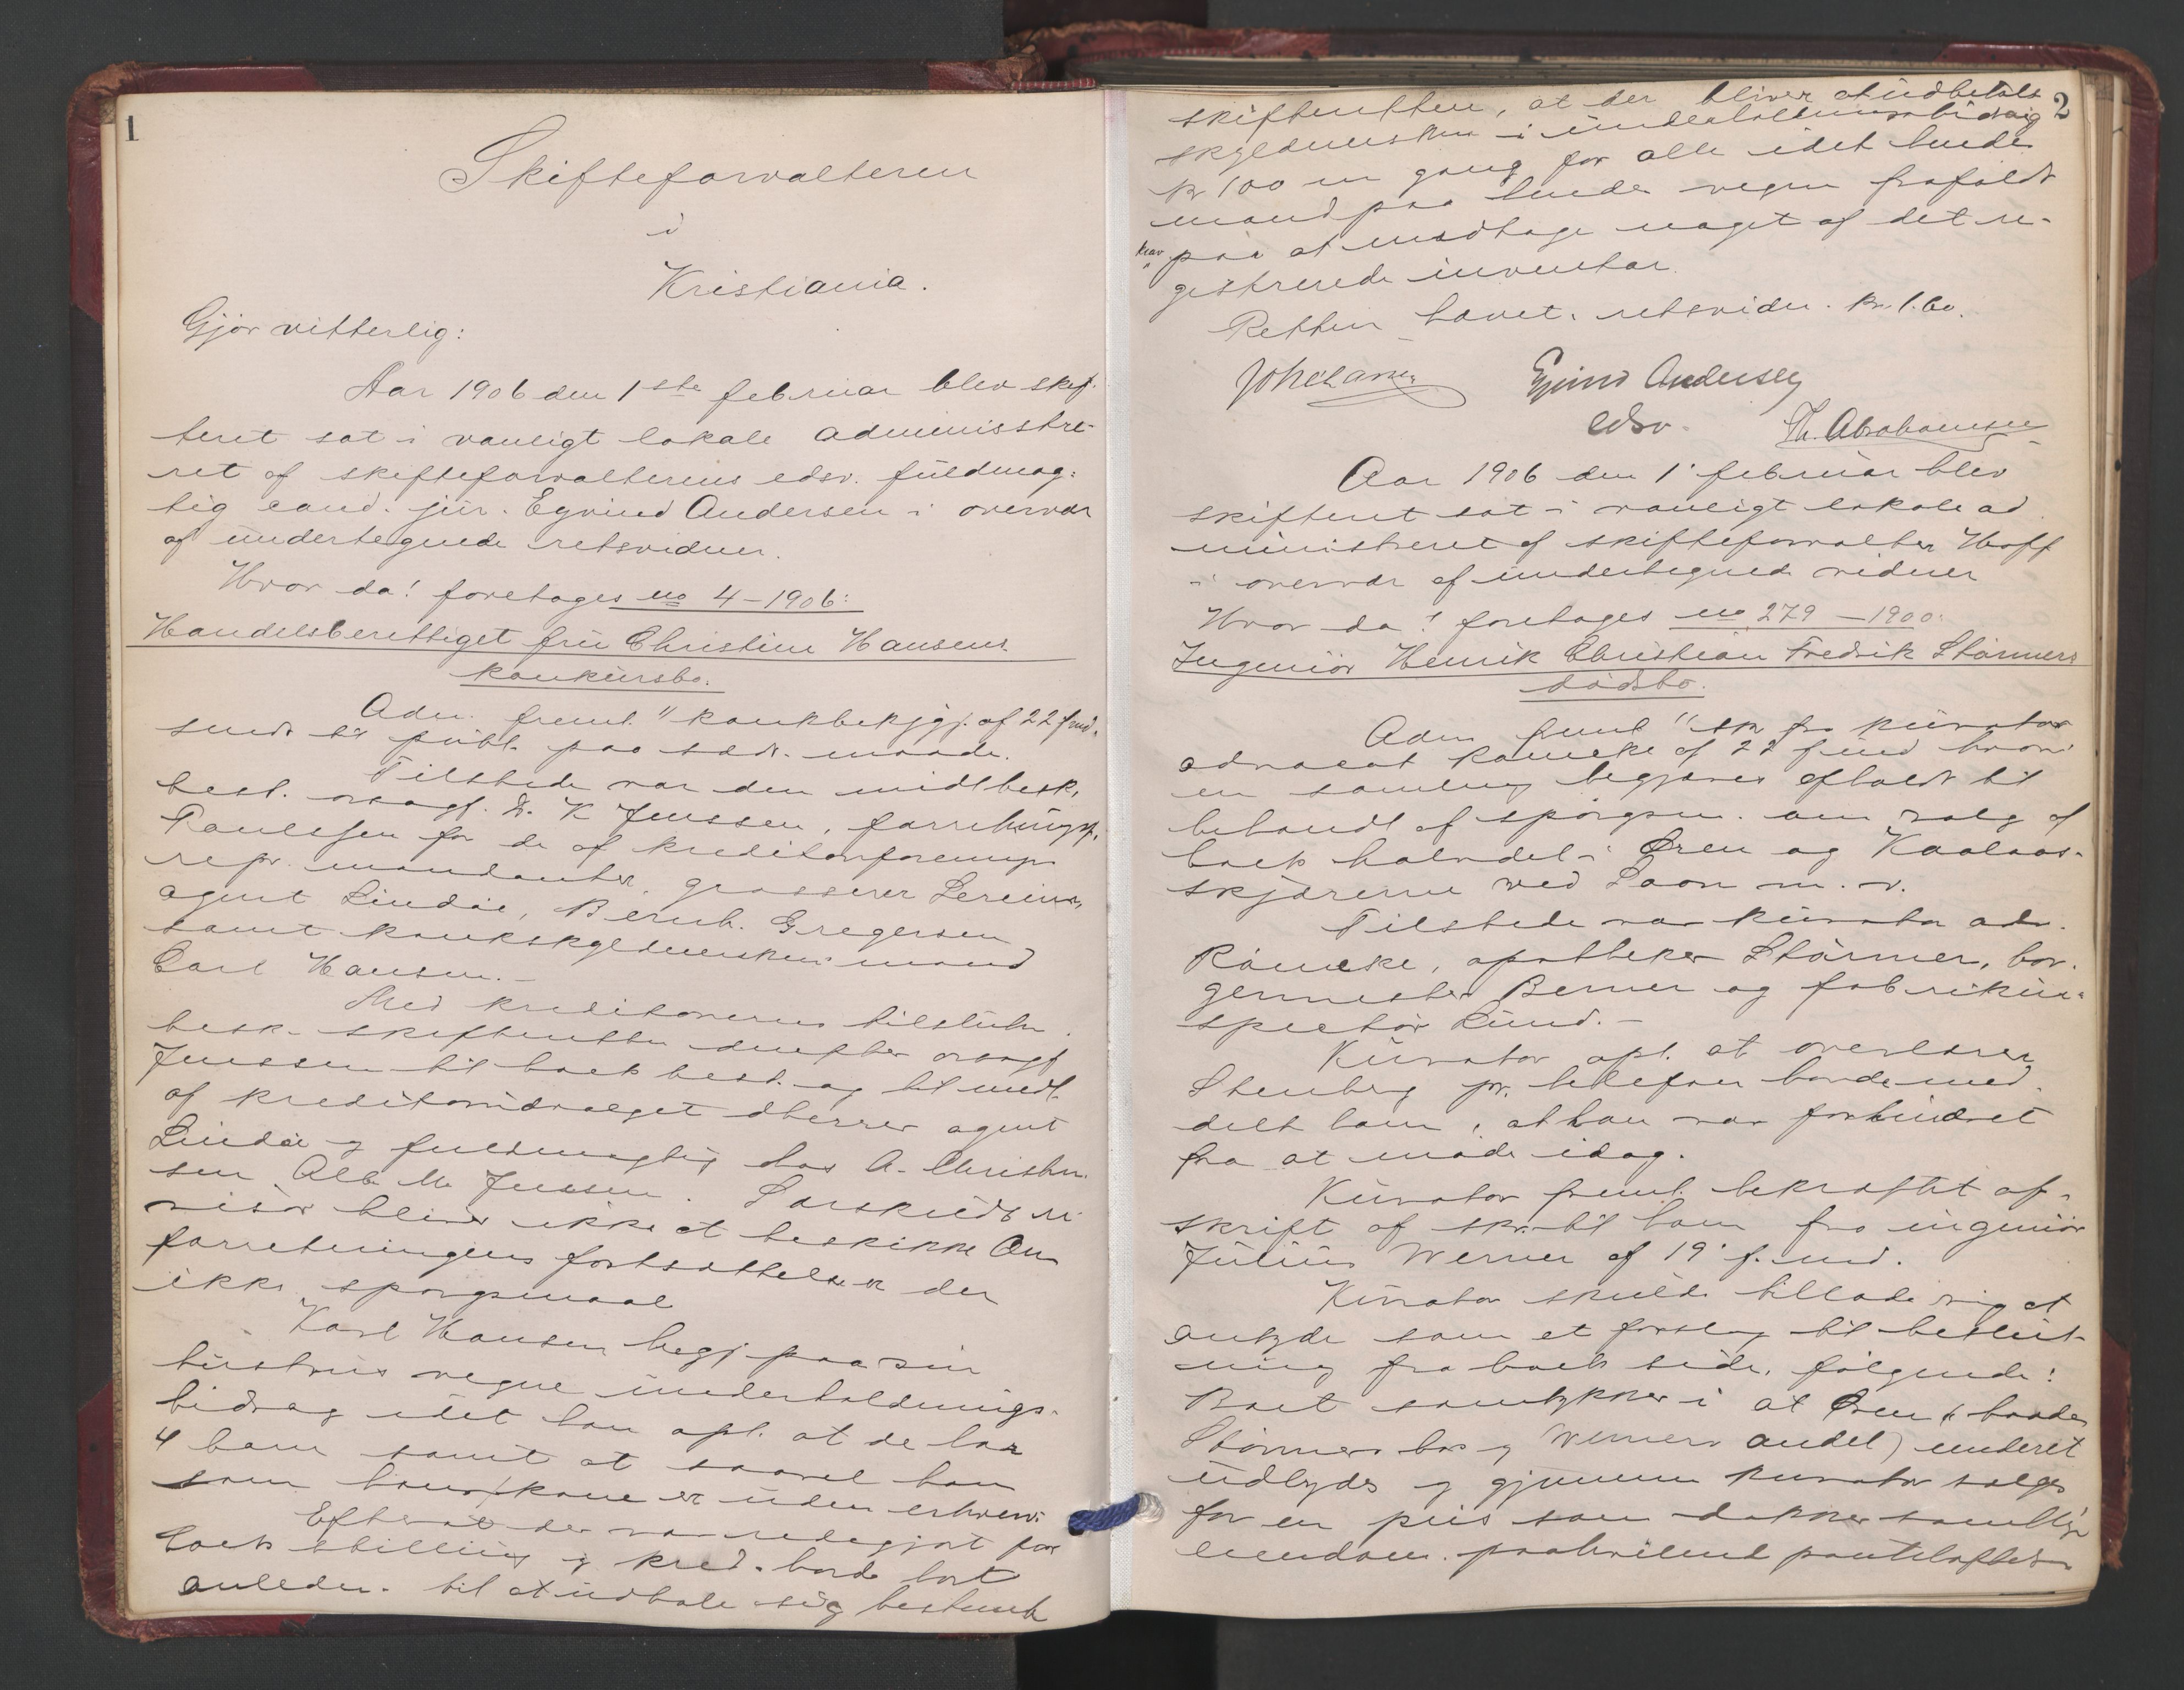 1
Skifteforvalteren
i
Kristiania.
Gjør vitterlig:
Aar 1906 den 1ste februar blev skif-
teret sat i vanligt lokale administre-
ret af skifteforvalterens edsv. fuldmæg-
tig cand. jur. Eyvind Andersen i overvær
af undertegnede retsvidner.
Hvor da! foretoges no 4-1906:
Handelsberettiget frü Christine Hansens
konkursbo.
Adm. freml. " konkbekjgj. af 22 f md.
sendt til publ. paa sædv. maade.
Tilstede var den midl besk.
best. orsagf. D. K Jenssen, forretningsf.
Paulssen for de af kreditorforening
repr. mandanter, grosserer
agent Lindøe, Bernh. Gregersen
samt konkskyldnerskens mand
Carl Hansen.-
Med kreditorernes tilslutn.
besk. skifteretten derefter orsagf
Jenssen til boets best. og til medl.
af kreditorudvalget dherrer agent
Lindøe og fuldmægtig hos A. Christen-
sen Alb. M. Jenssen. Særskildt re-
visor bliver ikke at beskikke Om
forretningens fortsættelse er der
ikke spørgsmaal
Karl Hansen begj paa sin
hustrus vegne underholdnings-
bidrag idet han opl. at de har
4 barn samt at saavel han
som hans kone er uden erhverv.
Efterat der var redegjort for
boets stilling og kred. havde havt
anledn. til at udtale sig bestemte
2
skifteretten, at der bliver at udbetale
skyldnersken i underholdningsbidrag
kr 100 en gang for alle idet hendes
mand paa hendes vegne frafaldt
krav " paa at modtage noget af det re-
gistrerede inventar.
Retten hævet. retsvidn. kr. 1.60.
Eyvind Andersen
edsv. Th. Abrahamsen
Aar 1906 den 1' februar blev
skifteret sat i vanligt lokale ad
ministreret af skifteforvalter Hoff
i overvær af undertegnede vidner
Hvor da! foretoges no 279 - 1900:
Ingeniør Henrik Christian Fredrik Størmers
dødsbo.
Adm freml " skr fra kurator
advocat Røme​ke af 22 f md hvori
en samling begjæres afholdt til
behandl af spørgsm. om salg af
boets halvdel i Øren og Kaalaas-
skjærerne ved Saon m. v.
Tilstede var kurator adv.
Römcke, apotheker Størmer, bor-
germester Berner og fabrikin-
spectør Lund.-
Kurator opl. at overlærer
Stenberg pr. telefon havde med-
delt ham, at han var forhindret
fra at møde idag.
Kurator freml. bekræftet af-
skrift af skr. til ham fra ingeniør
Julius Werner af 19' f. md.
Kurator skulde tillade sig at
antyde som et forslag til beslut-
ning fra boets side, følgende:
Boet samtykker i at Øren (baade
Størmers bos og Werners andel) underet
udbydes og gjennem kurator sælges
for en pris som dækker samtlige
eiendom. paahvilende panteheftelser